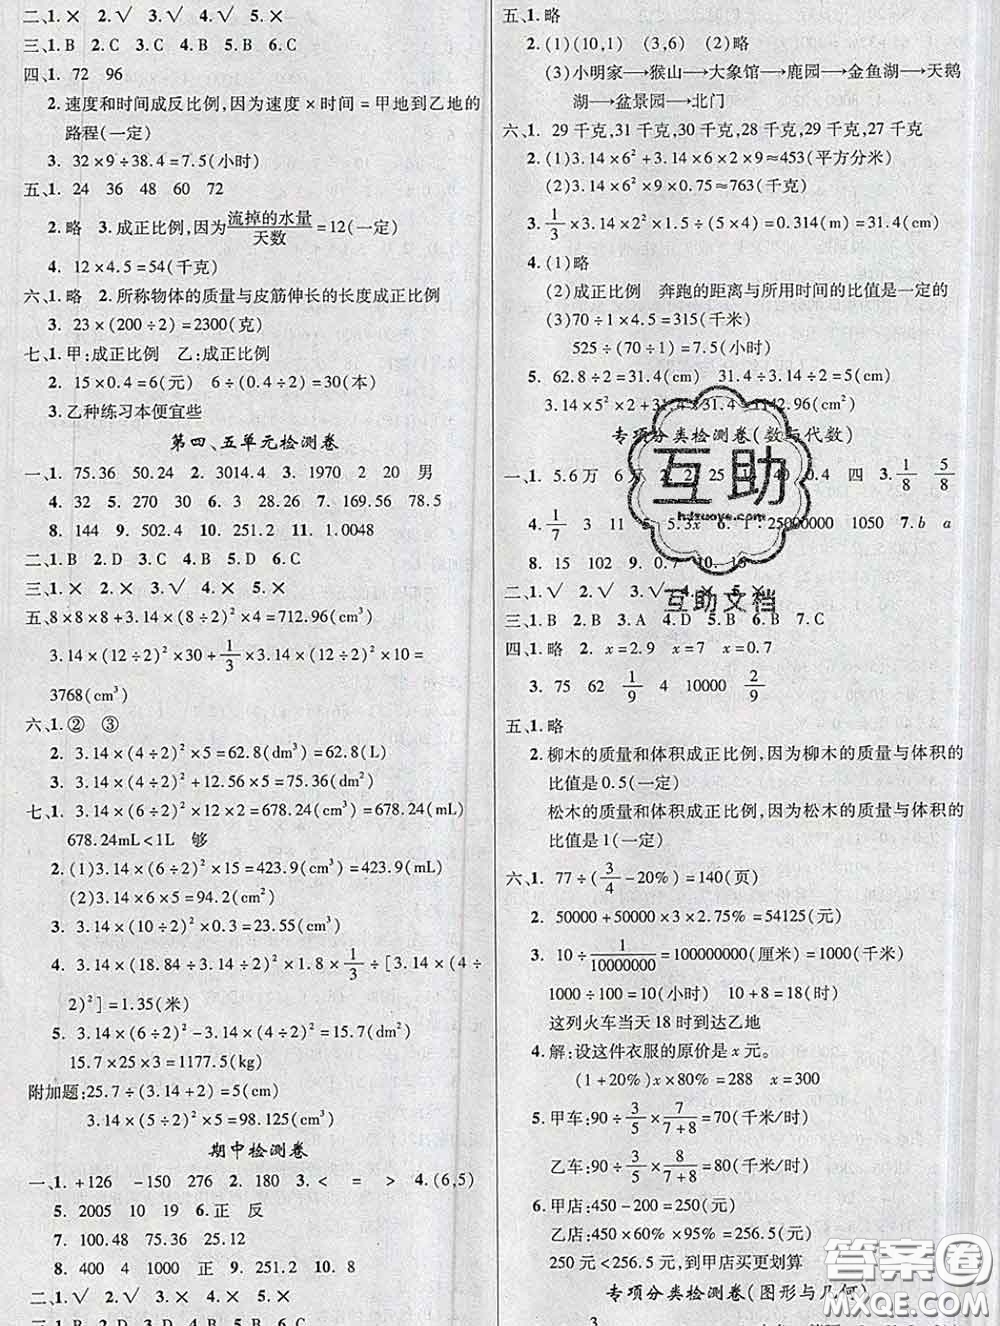 二、1.× 2.√ 3.× 4.√ 5.√ 6.×
三、1.B 2.C 3.C 4.B 5.B 6.C
四、1. 72 96
2.速度和时间成反比例,因为速度×时间=甲地到乙地的
路程(一定)
3. 32×9÷38.4=7.5(小时)
五、1. 24 36 48 60 72
2.略 3.成正比例,因为流掉的水量/天数=12(一定)
4. 12×4.5=54(千克)
六、1.略 2.所称物体的质量与皮筋伸长的长度成正比例
3. 23×(200÷2)=2300(克)
七、1.甲:成正比例 乙:成正比例
2. 15×0.4=6(元) 6÷(0.4÷2)=30(本)
3.乙种练习本便宜些
第四、五单元检测卷
一、1. 75.36 50.24 2. 3014.4 3. 1970 2 20 男
4. 32 5. 270 30 6. 3 28.26 7. 169.56 78.5
8. 144 9. 502.4 10. 251.2 11. 1.0048
二、1.B 2.D 3.C 4.B 5.B 6.D
三、1.× 2.× 3.√ 4.× 5.×
五、8×8×8+3.14×(8÷2)²×4=712.96(cm³)
3.14×(12÷2)²×30+1/3×3.14×(12÷2)²×10=
3768(cm³)
六、1.② ③
2. 3.14×(4÷2)²×5=62.8(dm³)=62.8(L)
3. 3.14×(4÷2)²+12.56×5=75.36(dm²)
七、1. 3.14×(6÷2)²×12×2=678.24(cm³)=678.24(mL)
678.24mL<1L 够
2.(1)3.14×(6÷2)²×15=423.9(cm³)=423.9(mL)
(2)3.14×6×5=94.2(cm²)
3. 3.14×(10÷2)²×0.3=23.55(cm³)
4. 3.14×(18.84÷3.14÷2)²×1.8×1/3÷[3.14×(4÷
2)²]=1.35(米)
5. 3.14×(6÷2)²-3.14×(4÷2)²=15.7(dm²)
15.7×25×3=1177.5(kg)
附加题:25.7÷(3.14+2)=5(cm)
3.14×(5÷2)²×5=98.125(cm³)
期中检测卷
一、1. +126 -150 276 2. 180 3. < = > 4.(6,5)
5. 2005 10 19 6.正 反
7. 100.48 75.36 25.12
8. 400 4 1000 正 9. 251.2 10. 8
二、1.√ 2.× 3.√ 4.× 5.×
五、1.略
2.(1)(10,1) (3,6) (2)略
(3)小明家→猴山→大象馆→鹿园→金鱼湖→天鹅
湖→盆景园→北门
六、1. 29千克,31千克,30千克,28千克,29千克,27千克
2.(1)3.14×6²+3.14×6×2×9≈453(平方分米)
(2)3.14×6²×9×0.75≈763(千克)
3. 1/3×3.14×2²×1.5÷(5×4)=0.314(m)=31.4(cm)
4.(1)略
(2)成正比例 奔跑的距离与所用时间的比值是一定的
(3)70÷1×4.5=315(千米)
525÷(70÷1)=7.5(小时)
5. 62.8÷2=31.4(cm) 31.4÷3.14÷2=5(cm)
3.14×5²×2+31.4×31.4=1142.96(cm²)
专项分类检测卷(数与代数)
一、1. 5.6万 6万 2. 25 40 0.4 四 3. 1/8 5/8
4. 1/7 3 11 5. 5.3x 6. 1:25000000 1050 7. b a
8. 15 102 9. 0.7 10. 15
二、1.√ 2.√ 3.√ 4.× 5.×
三、1.B 2.B 3.A 4.D 5.B 6.B 7.C
四、1.略 2. x=2.9 x=7 x=0.7
3. 75 62 1/9 4 10000 2/9
五、1.略
2.柳木的质量和体积成正比例,因为柳木的质量与体积的
比值是0.5(一定)
松木的质量和体积成正比例,因为松木的质量与体积的
比值是1(一定)
六、1. 77÷(3/4-20%)=140(页)
2. 50000+50000×3×2.75%=54125(元)
3. 10÷1/10000000=100000000(厘米)=1000(千米)
1000÷100=10(小时) 10+8=18(时)
这列火车当天18时到达乙地
4.解:设这件衣服的原价是x元。
(1+20%)x×80%=288 x=300
5.甲车:90÷3/5×7/(7+8)=70(千米/时)
乙车:90÷3/5×8/(7+8)=80(千米/时)
6.甲店:450-200=250(元)
乙店:450×60%×95%=256.5(元)
250元<256.5元,到甲店买更划算
专项分类检测卷(图形与几何)
互助
hdzuoye.com
互助文档
答案圈
MXQE.COM